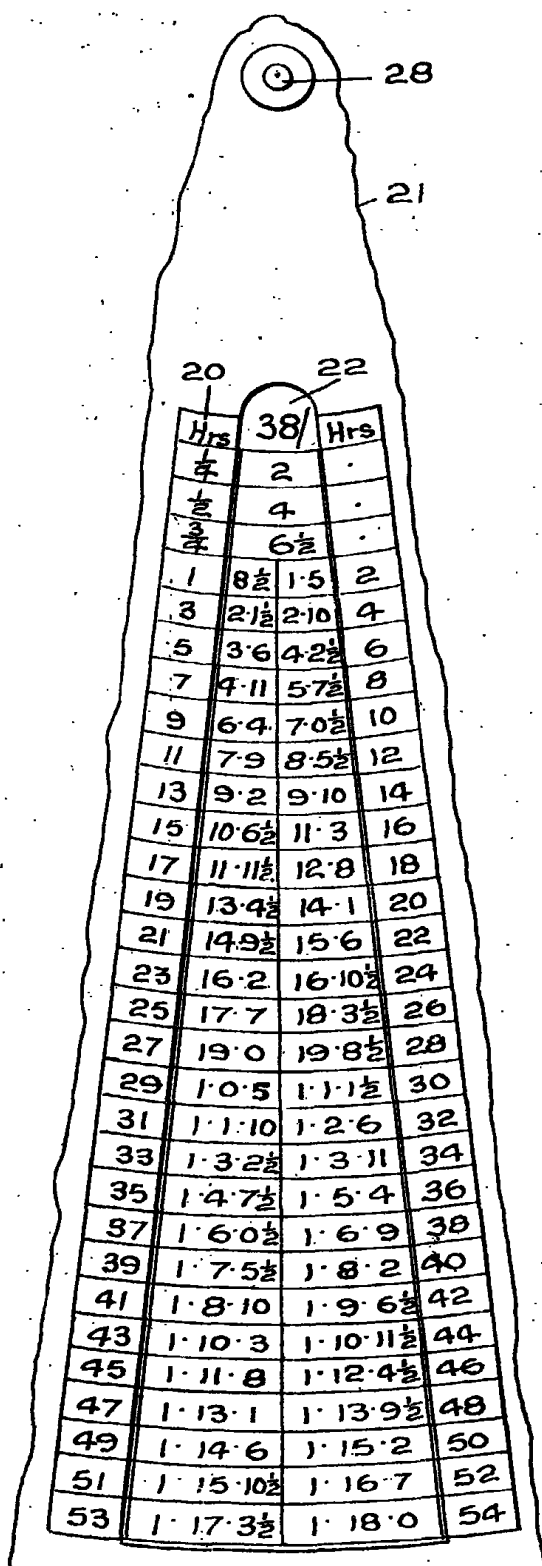 28
21
20 22
Hrs 38/ Hrs
¼ 2 ·
½ 4 ·
¾ 6½ ·
1 8½ 1·5 2
3 2·1½ 2·10 4
5 3·6 4·2½ 6
7 4·11 5·7½ 8
9 6·4 7·0½ 10
11 7·9 8·5½ 12
13 9·2 9·10 14
15 10·6½ 11·3 16
17 11·11½ 12·8 18
19 13·4½ 14·1 20
21 14·9½ 15·6 22
23 16·2 16·10½ 24
25 17·7 18·3½ 26
27 19·0 19·8½ 28
29 1·0·5 1·1·1½ 30
31 1·1·10 1·2·6 32
33 1·3·2½ 1·3·11 34
35 1·4·7½ 1·5·4 36
37 1·6·0½ 1·6·9 38
39 1·7·5½ 1·8·2 40
41 1·8·10 1·9·6½ 42
43 1·10·3 1·10·11½ 44
45 1·11·8 1·12·4½ 46
47 1·13·1 1·13·9½ 48
49 1·14·6 1·15·2 50
51 1·15·10½ 1·16·7 52
53 1·17·3½ 1·18·0 54